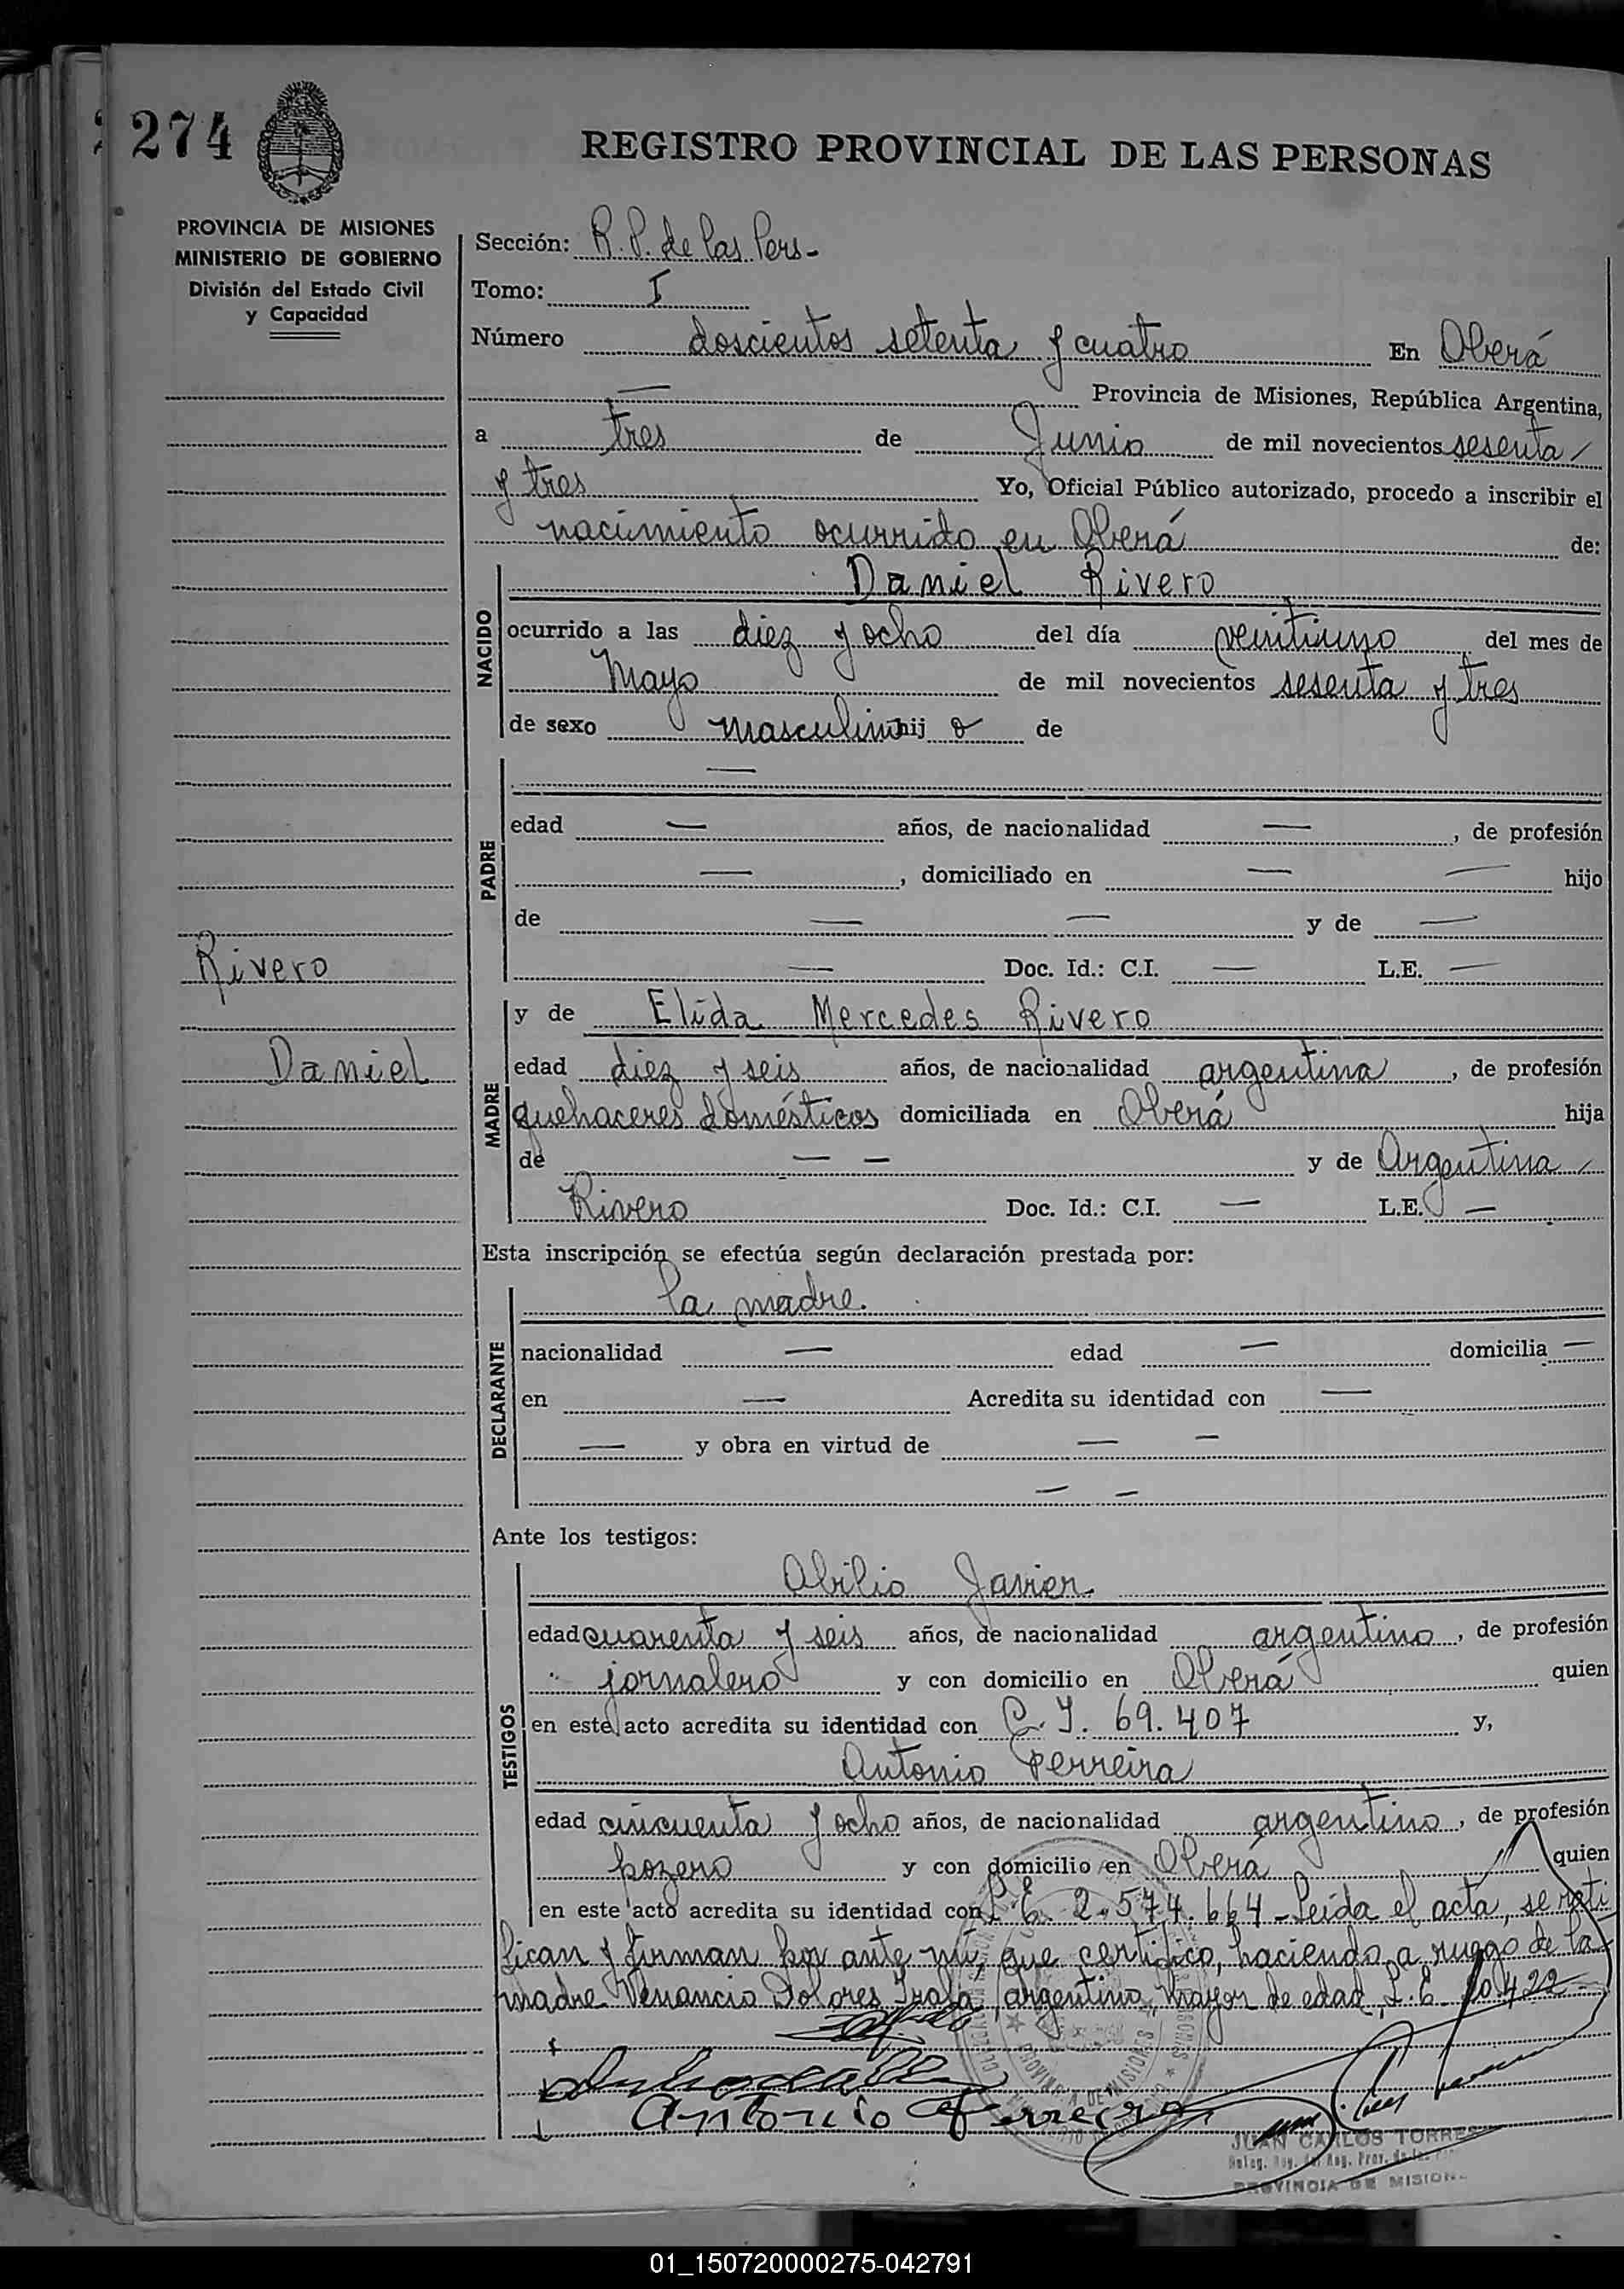 274
REGISTRO PROVINCIAL DE LAS PERSONAS
PROVINCIA DE MISIONES
MINISTERIO DE GOBIERNO
División del Estado Civil
y Capacidad
Sección: R. P. de las Pers-
Tomo: I
Número doscientos setenta y cuatro En Oberá
— Provincia de Misiones, República Argentina,
a tres de Junio de mil novecientos sesenta /
y tres Yo, Oficial Público autorizado, procedo a inscribir el
nacimiento ocurrido en Oberá de:
NACIDO
Daniel Rivero
ocurrido a las diez y ocho del día veintiuno del mes de
Mayo de mil novecientos sesenta y tres
de sexo masculino hij o de
PADRE
—
edad — años, de nacionalidad — , de profesión
— , domiciliado en — — hijo
de — — y de —
— Doc. Id.: C.I. — L.E. —
Rivero
Daniel
MADRE
y de Elida Mercedes Rivero
edad diez y seis años, de nacionalidad argentina , de profesión
quehaceres domésticos domiciliada en Oberá hija
de — — y de Argentina /
Rivero Doc. Id.: C.I. — L.E. —
Esta inscripción se efectúa según declaración prestada por:
DECLARANTE
la madre.
nacionalidad — edad — domicilia —
en — Acredita su identidad con —
— y obra en virtud de — —
— —
Ante los testigos:
TESTIGOS
Abilio Javier
edad cuarenta y seis años, de nacionalidad argentino , de profesión
jornalero y con domicilio en Oberá quien
en este acto acredita su identidad con C. I. 69.407 y,
Antonio Ferreira
edad cincuenta y ocho años, de nacionalidad argentino , de profesión
pozero y con domicilio en Oberá quien
en este acto acredita su identidad con L. E. 2.574.664 - Leída el acta, se rati
fican y firman por ante mí, que certifico, haciendo a ruego de la
madre Venancio Dolores Irala, argentino, mayor de edad, L. E.
Antonio Ferreira
PROVINCIA DE MISIONES
JUAN CARLOS TORRES
PROVINCIA DE MISION
01_150720000275-042791